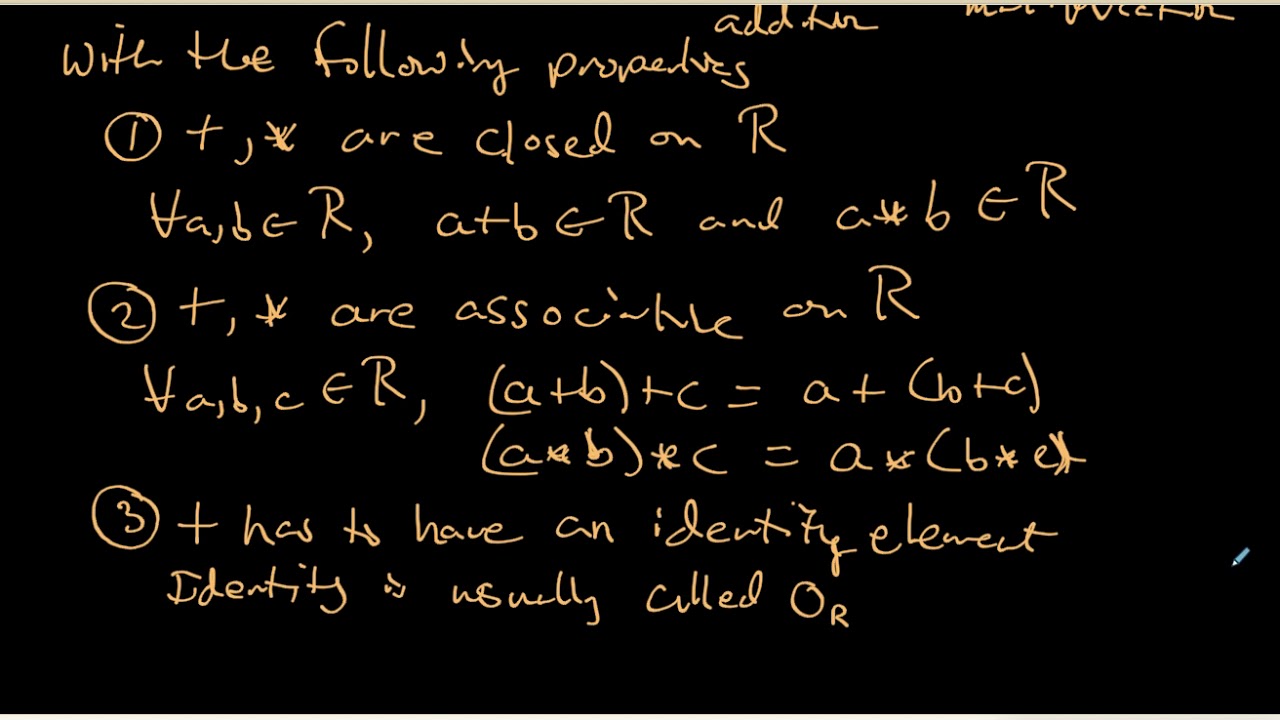 addition multiplication
with the following properties
① +, * are closed on R
∀a,b ∈ R, a+b ∈ R and a*b ∈ R
② +, * are associative on R
∀a,b,c ∈ R, (a+b)+c = a+(b+c)
(a*b)*c = a*(b*c)
③ + has to have an identity element
Identity is usually called 0_R